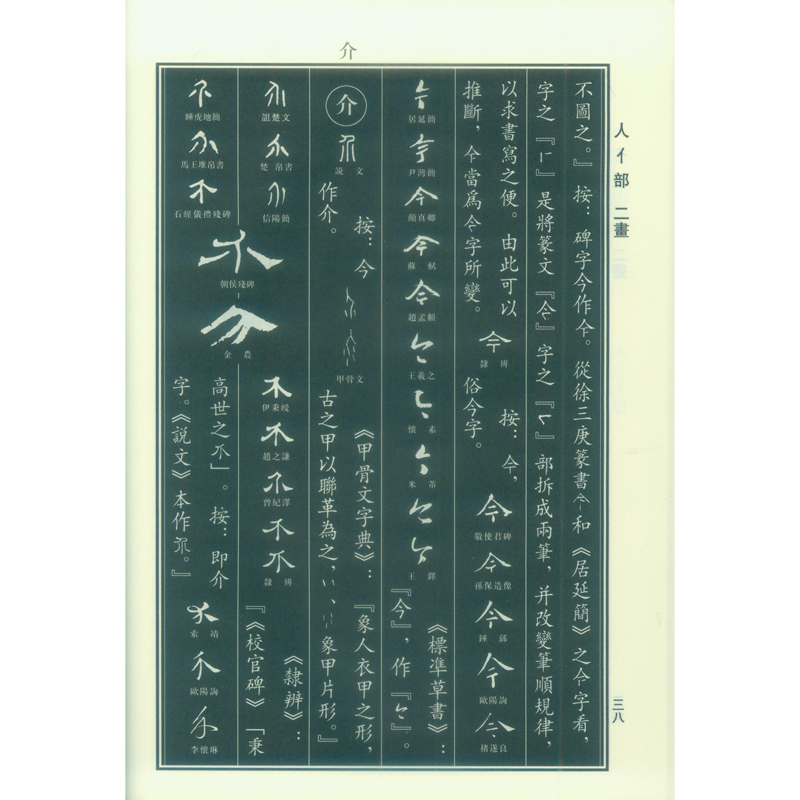 介
人亻部 二畫
三八
不圖之。』按：碑字今作仐。從徐三庚篆書和《居延簡》之仐字看，
字之『ㄏ』是將篆文『』字之『ㄟ』部拆成兩筆，并改變筆順規律，
以求書寫之便。由此可以
推斷，仐當爲今字所變。
隸辨
按：今，
俗今字。
敬使君碑
孫保造像
鍾繇
歐陽詢
褚遂良
居延簡
尹灣簡
顏真卿
蘇軾
趙孟頫
王羲之
懷素
米芾
王鐸
《標準草書》：
『今』，作『』。
介
說文
按：今
作介。
甲骨文
《甲骨文字典》：『象人衣甲之形，
古之甲以聯革為之，象甲片形。』
詛楚文
楚帛書
信陽簡
睡虎地簡
馬王堆帛書
石經儀禮殘碑
朝侯殘碑
金農
伊秉綬
趙之謙
曾紀澤
隸辨
《隸辨》：
『《校官碑》「秉
高世之介」。按：即介
字。《說文》本作。』
索靖
歐陽詢
李懷琳